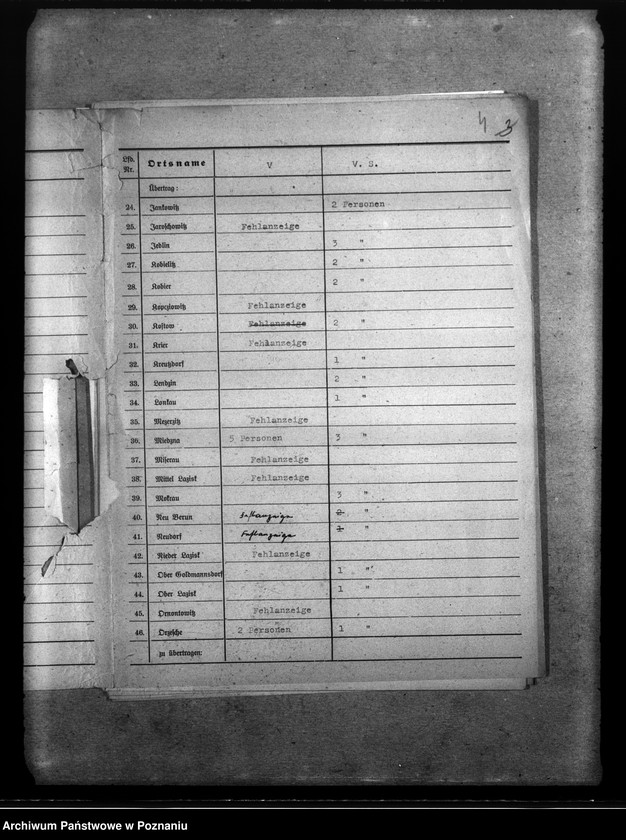 4 3
Lfd. Nr. Ortsname V V. S.
Übertrag:
24. Jankowitz 2 Personen
25. Jaroschowitz Fehlanzeige
26. Jedlin 3 "
27. Kobielitz 2 "
28. Kobier 2 "
29. Kopciowitz Fehlanzeige
30. Kostow Fehlanzeige 2 "
31. Krier Fehlanzeige
32. Kreuzdorf 1 "
33. Lendzin 2 "
34. Lonkau 1 "
35. Mezerzitz Fehlanzeige
36. Miedzna 5 Personen 3 "
37. Miserau Fehlanzeige
38. Mittel Lazisk Fehlanzeige
39. Mokrau 3 "
40. Neu Berun Fehlanzeige 2 "
41. Neudorf Fehlanzeige 1 "
42. Nieder Lazisk Fehlanzeige
43. Ober Goldmannsdorf 1 "
44. Ober Lazisk 1 "
45. Ornontowitz Fehlanzeige
46. Orzesche 2 Personen 1 "
zu übertragen:
Archiwum Państwowe w Poznaniu